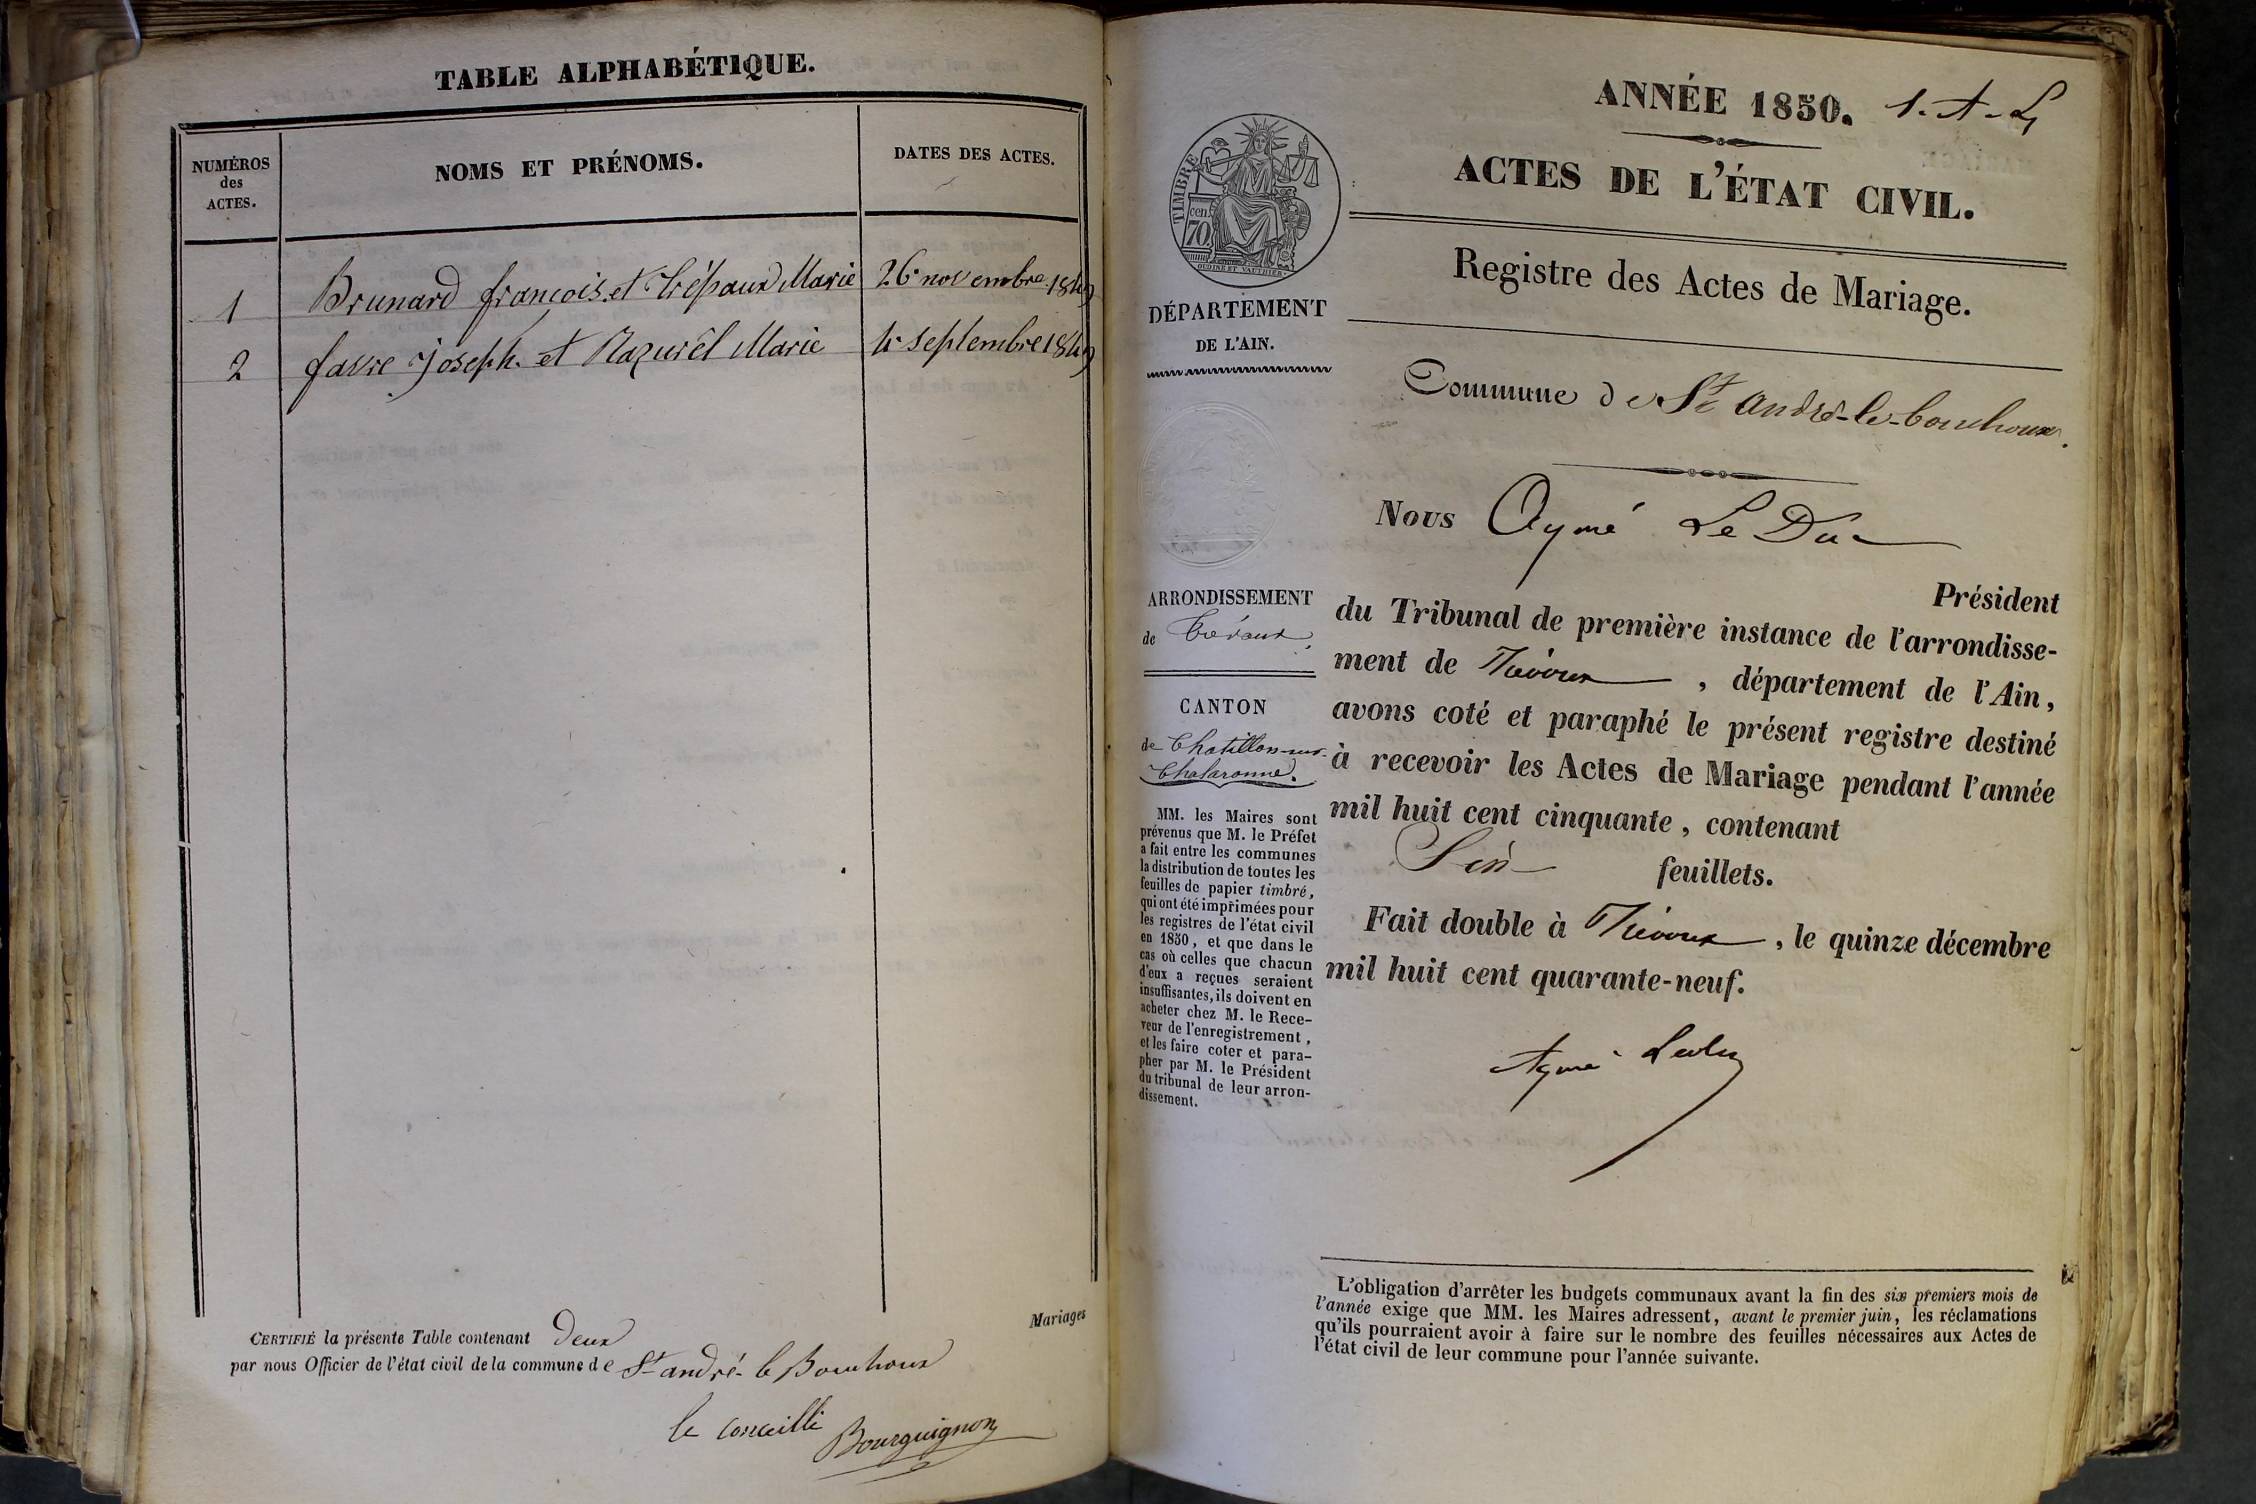 TABLE ALPHABÉTIQUE.
NUMÉROS
des
ACTES.
NOMS ET PRÉNOMS.
DATES DES ACTES.
1 Brunard françois et Trépaud Marie 26 novembre 1849
2 favre joseph et Mazurêl Marie 4 septembre 1849
Mariages
CERTIFIÉ la présente Table contenant deux
par nous Officier de l'état civil de la commune de St andré le Bouchoux
le
Bourguignon
ANNÉE 1850. 1. A. L
ACTES DE L'ÉTAT CIVIL.
Registre des Actes de Mariage.
TIMBRE
cen.
70
OUDINÉ ET VAUTHIER
DÉPARTEMENT
DE L'AIN.
Commune de St andré-le-bouchoux.
Nous Aymé Le Duc
Président
du Tribunal de première instance de l'arrondisse-
ment de Trévoux, département de l'Ain,
avons coté et paraphé le présent registre destiné
à recevoir les Actes de Mariage pendant l'année
mil huit cent cinquante, contenant
Six feuillets.
Fait double à Trévoux, le quinze décembre
mil huit cent quarante-neuf.
Aymé Leduc
ARRONDISSEMENT
de Trévoux
CANTON
de Chatillon-sur-
Chalaronne.
MM. les Maires sont
prévenus que M. le Préfet
a fait entre les communes
la distribution de toutes les
feuilles de papier timbré,
qui ont été imprimées pour
les registres de l'état civil
en 1850, et que dans le
cas où celles que chacun
d'eux a reçues seraient
insuffisantes, ils doivent en
acheter chez M. le Rece-
veur de l'enregistrement,
et les faire coter et para-
pher par M. le Président
du tribunal de leur arron-
dissement.
L'obligation d'arrêter les budgets communaux avant la fin des six premiers mois de
l'année exige que MM. les Maires adressent, avant le premier juin, les réclamations
qu'ils pourraient avoir à faire sur le nombre des feuilles nécessaires aux Actes de
l'état civil de leur commune pour l'année suivante.